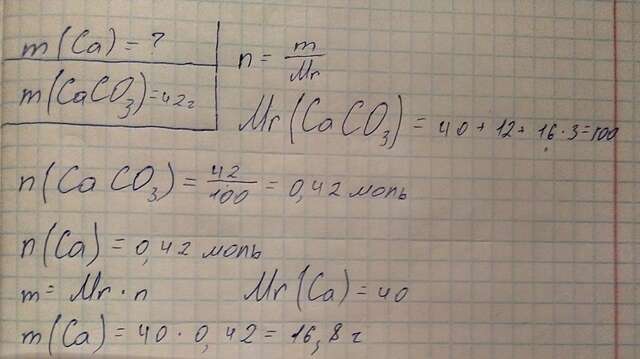 m(Ca) = ?
m(CaCO₃) = 42 г
n = m/Mr
Mr(CaCO₃) = 40 + 12 + 16 · 3 = 100
n(CaCO₃) = 42/100 = 0,42 моль
n(Ca) = 0,42 моль
m = Mr · n
Mr(Ca) = 40
m(Ca) = 40 · 0,42 = 16,8 г